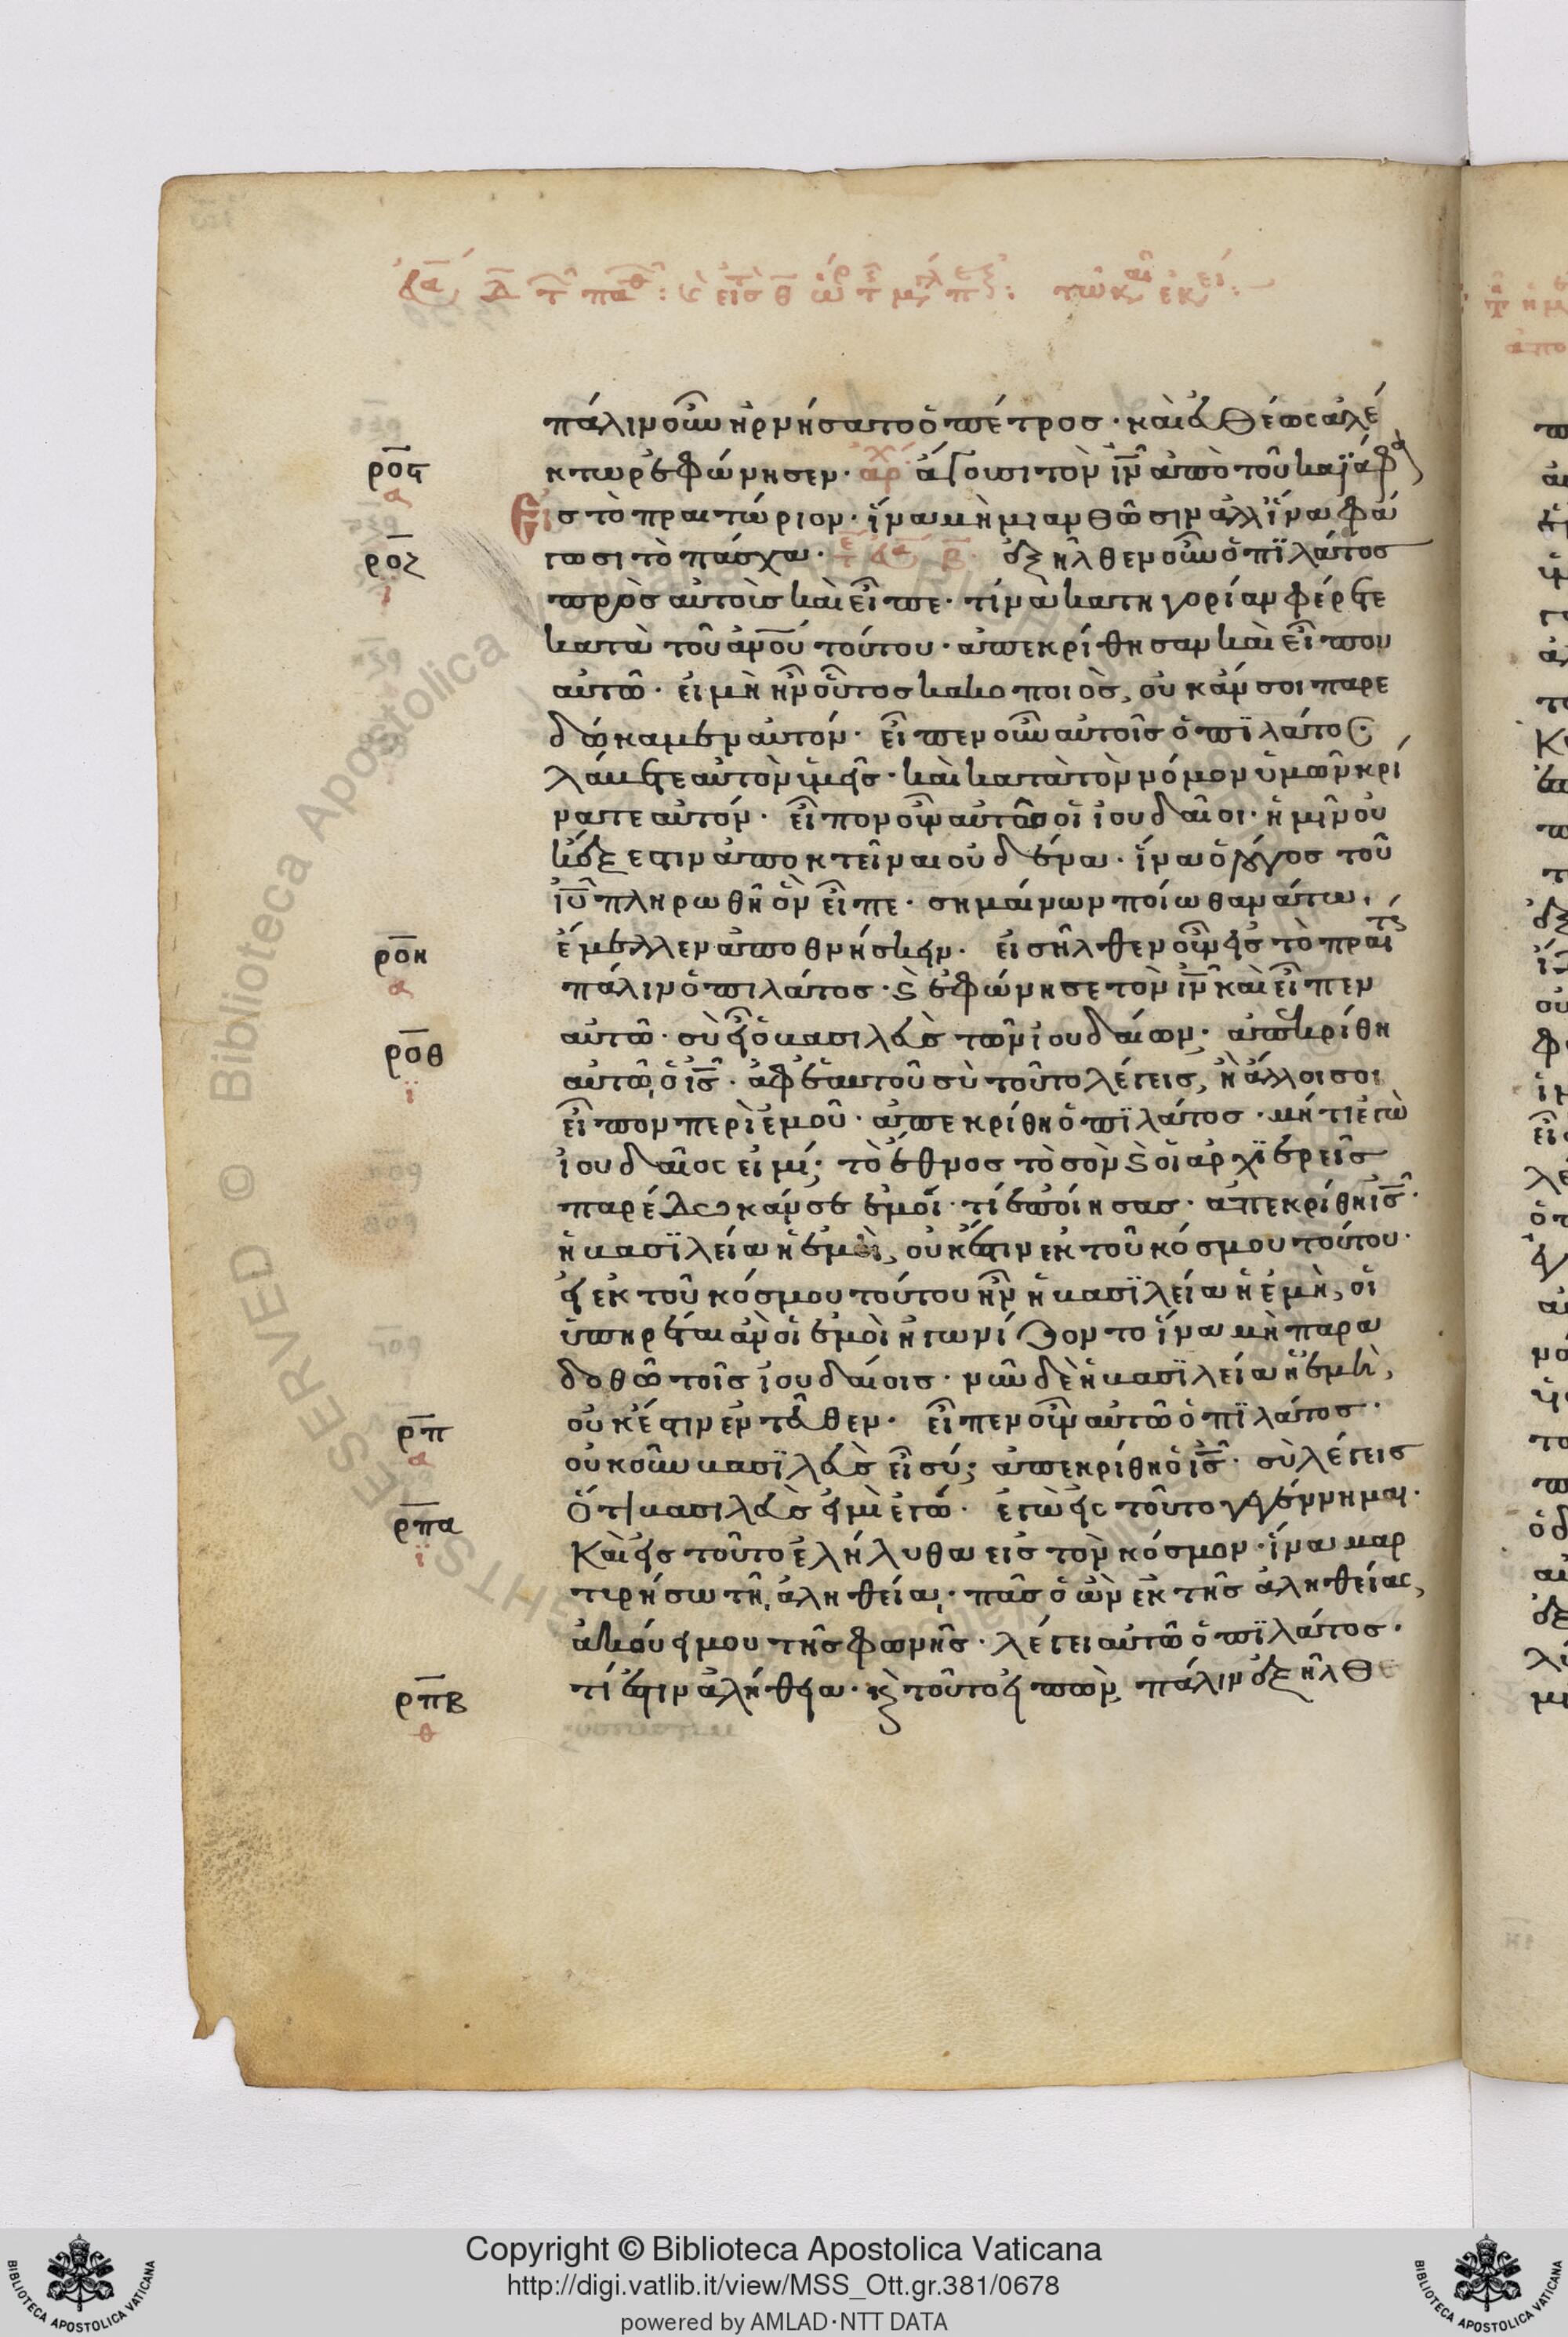 πάλιν οὖν ἠρνήσατο ὁ πέτρος · καὶ εὐθέως ἀλέ
ρος κτωρ ἐφώνησεν · ἀρχ ἄγουσι τὸν ἰν ἀπὸ τοῦ καϊάφα
α
εἰς τὸ πραιτώριον · ἵνα μὴ μιανθῶσιν ἀλλ ἵνα φά
ροζ γωσι τὸ πάσχα · β ἐξῆλθεν οὖν ὁ πϊλάτος
ι
πρὸς αὐτοὺς καὶ εἶπε · τίνα κατηγορίαν φέρετε
κατὰ τοῦ ανου τούτου · ἀπεκρίθησαν καὶ εἶπον
αὐτῶ · εἰ μὴ ἦν οὗτος κακοποιὸς, οὐκ ἄν σοι παρε
δώκαμεν αὐτόν · εἶπεν οὖν αὐτοῖς ὁ πϊλάτος ·
λάβετε αὐτὸν ὑμεῖς · καὶ κατὰ τὸν νόμον ὑμῶν κρί
νατε αὐτόν · εἶπον οὖν αὐτῶ οἱ ἰουδαῖοι · ἡμῖν οὐ
κ ἔξεστιν ἀποκτεῖναι οὐδένα · ἵνα ὁ λόγος τοῦ
ιυ πληρωθῆ ὃν εἶπε · σημαίνων ποίω θανάτω
ροη ἔμελλεν ἀποθνήσκειν · εἰσῆλθεν οὖν εἰς τὸ πραιτ
α
πάλιν ὁ πιλάτος · καὶ ἐφώνησε τὸν ιν καὶ εἶπεν
ροθ αὐτῶ · σὺ εἶ ὁ βασιλεὺς τῶν ἰουδαίων · ἀπεκρίθη
ϊ
αὐτῶ, ὁ ις · ἀφ ἑαυτοῦ σὺ τοῦτο λέγεις, ἢ ἄλλοι σοι
εἶπον περὶ ἐμοῦ · ἀπεκρίθη ὁ πϊλάτος · μήτι ἐγὼ
ἰουδαῖος εἰμί; τὸ ἔθνος τὸ σὸν καὶ οἱ ἀρχϊερεῖς
παρέδωκάν σε ἐμοί · τί ἐποίησας · ἀπεκρίθη ις ·
ἡ βασϊλεία ἡ ἐμὴ, οὐκ ἔστιν ἐκ τοῦ κόσμου τούτου ·
εἰ ἐκ τοῦ κόσμου τούτου ἦν ἡ βασϊλεία ἡ ἐμὴ, οἱ
ὑπηρέται ἂν οἱ ἐμοὶ ἠγωνίζοντο ἵνα μὴ παρα
δοθῶ τοῖς ἰουδαίοις · νῦν δὲ ἡ βασϊλεία ἡ ἐμὴ,
ρπ οὐκ έστιν ἐντεῦθεν · εἶπεν οὖν αὐτῶ ὁ πϊλάτος ·
α
οὐκοῦν βασϊλεὺς εἶ σύ; ἀπεκρίθη ὁ ις · σὺ λέγεις
ρπα ὅτι βασιλεὺς εἰμὶ ἐγώ · ἐγὼ εἰς τοῦτο γεγέννημαι ·
ϊ
Καὶ εἰς τοῦτο ἐλήλυθα εἰς τὸν κόσμον · ἵνα μαρ
τυρήσω τῆ, ἀληθεία, · πᾶς ὁ ὢν ἐκ τῆς ἀληθείας,
ἀκούει μου τῆς φωνῆς · λέγει αὐτῶ ὁ πϊλάτος ·
ρπβ τί ἐστιν ἀλήθεια · καὶ τοῦτο εἰπὼν, πάλιν ἐξῆλθε
θ
SERVED © Biblioteca Apostolica Vaticana
Copyright © Biblioteca Apostolica Vaticana
http://digi.vatlib.it/view/MSS_Ott.gr.381/0678
powered by AMLAD·NTT DATA
BIBLIOTECA APOSTOLICA VATICANA
BIBLIOTECA APOSTOLICA VATICANA